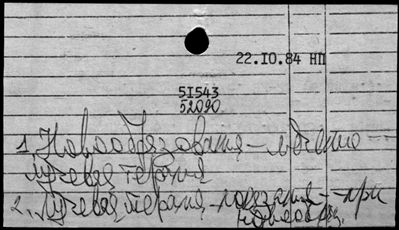 22.IO.84 НП
5I543
52090
1. Новообразования - лечение -
лучевая терапия
2. Лучевая терапия - показания - при
новообр.